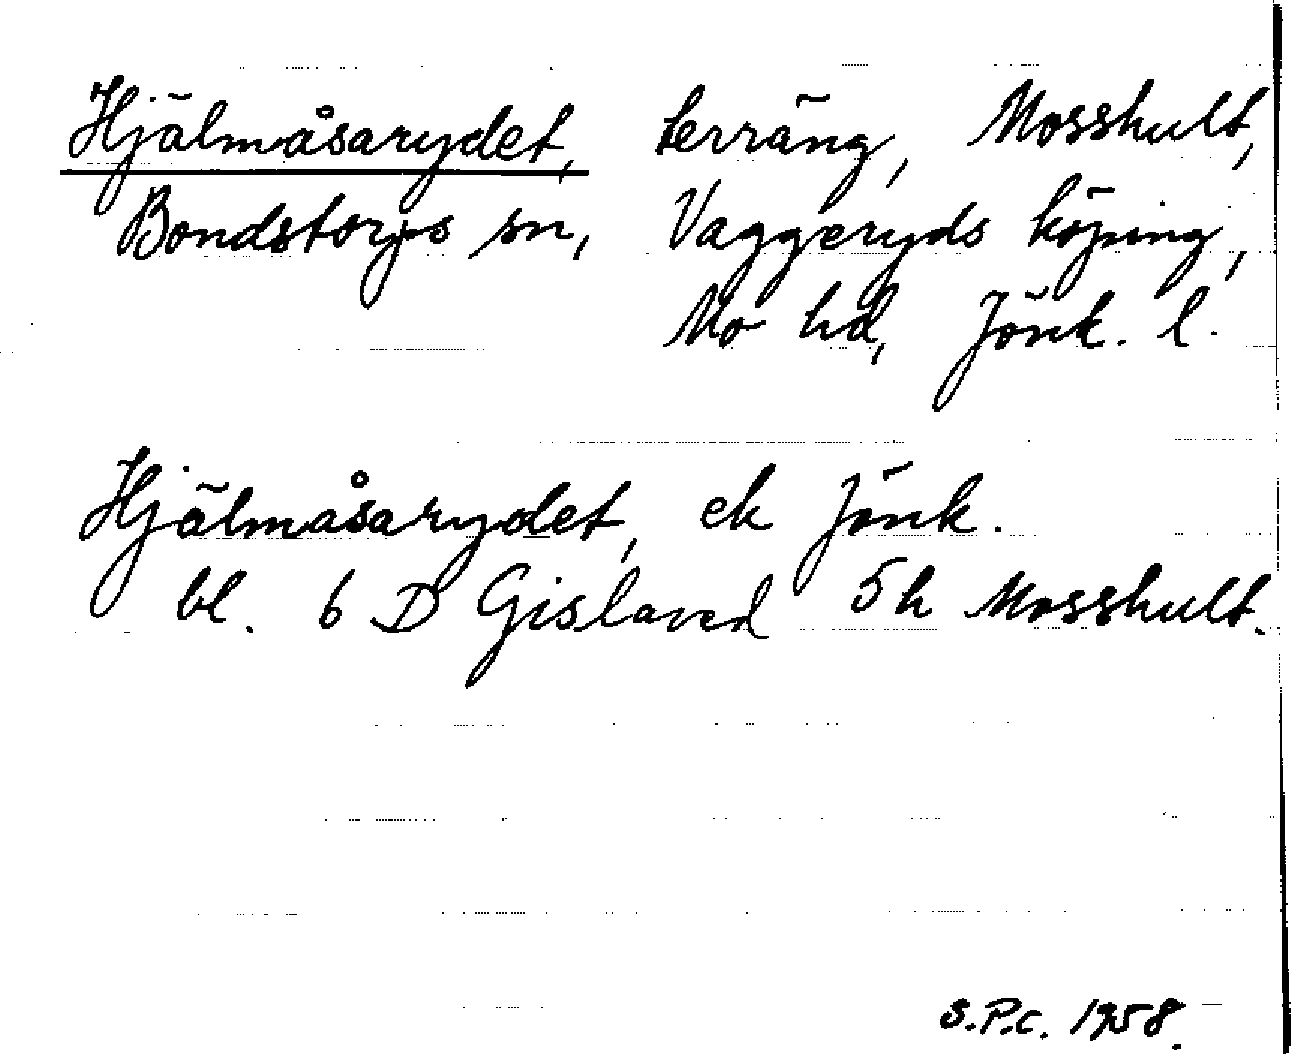 Hjälmåsarydet, terräng, Mosshult,
Bondstorps sn, Vaggeryds köping,
Mo hd, Jönk. l.
Hjälmåsarydet, ek Jönk.
bl. 6 D Gislaved 5h Mosshult.
S.P.C. 1958.